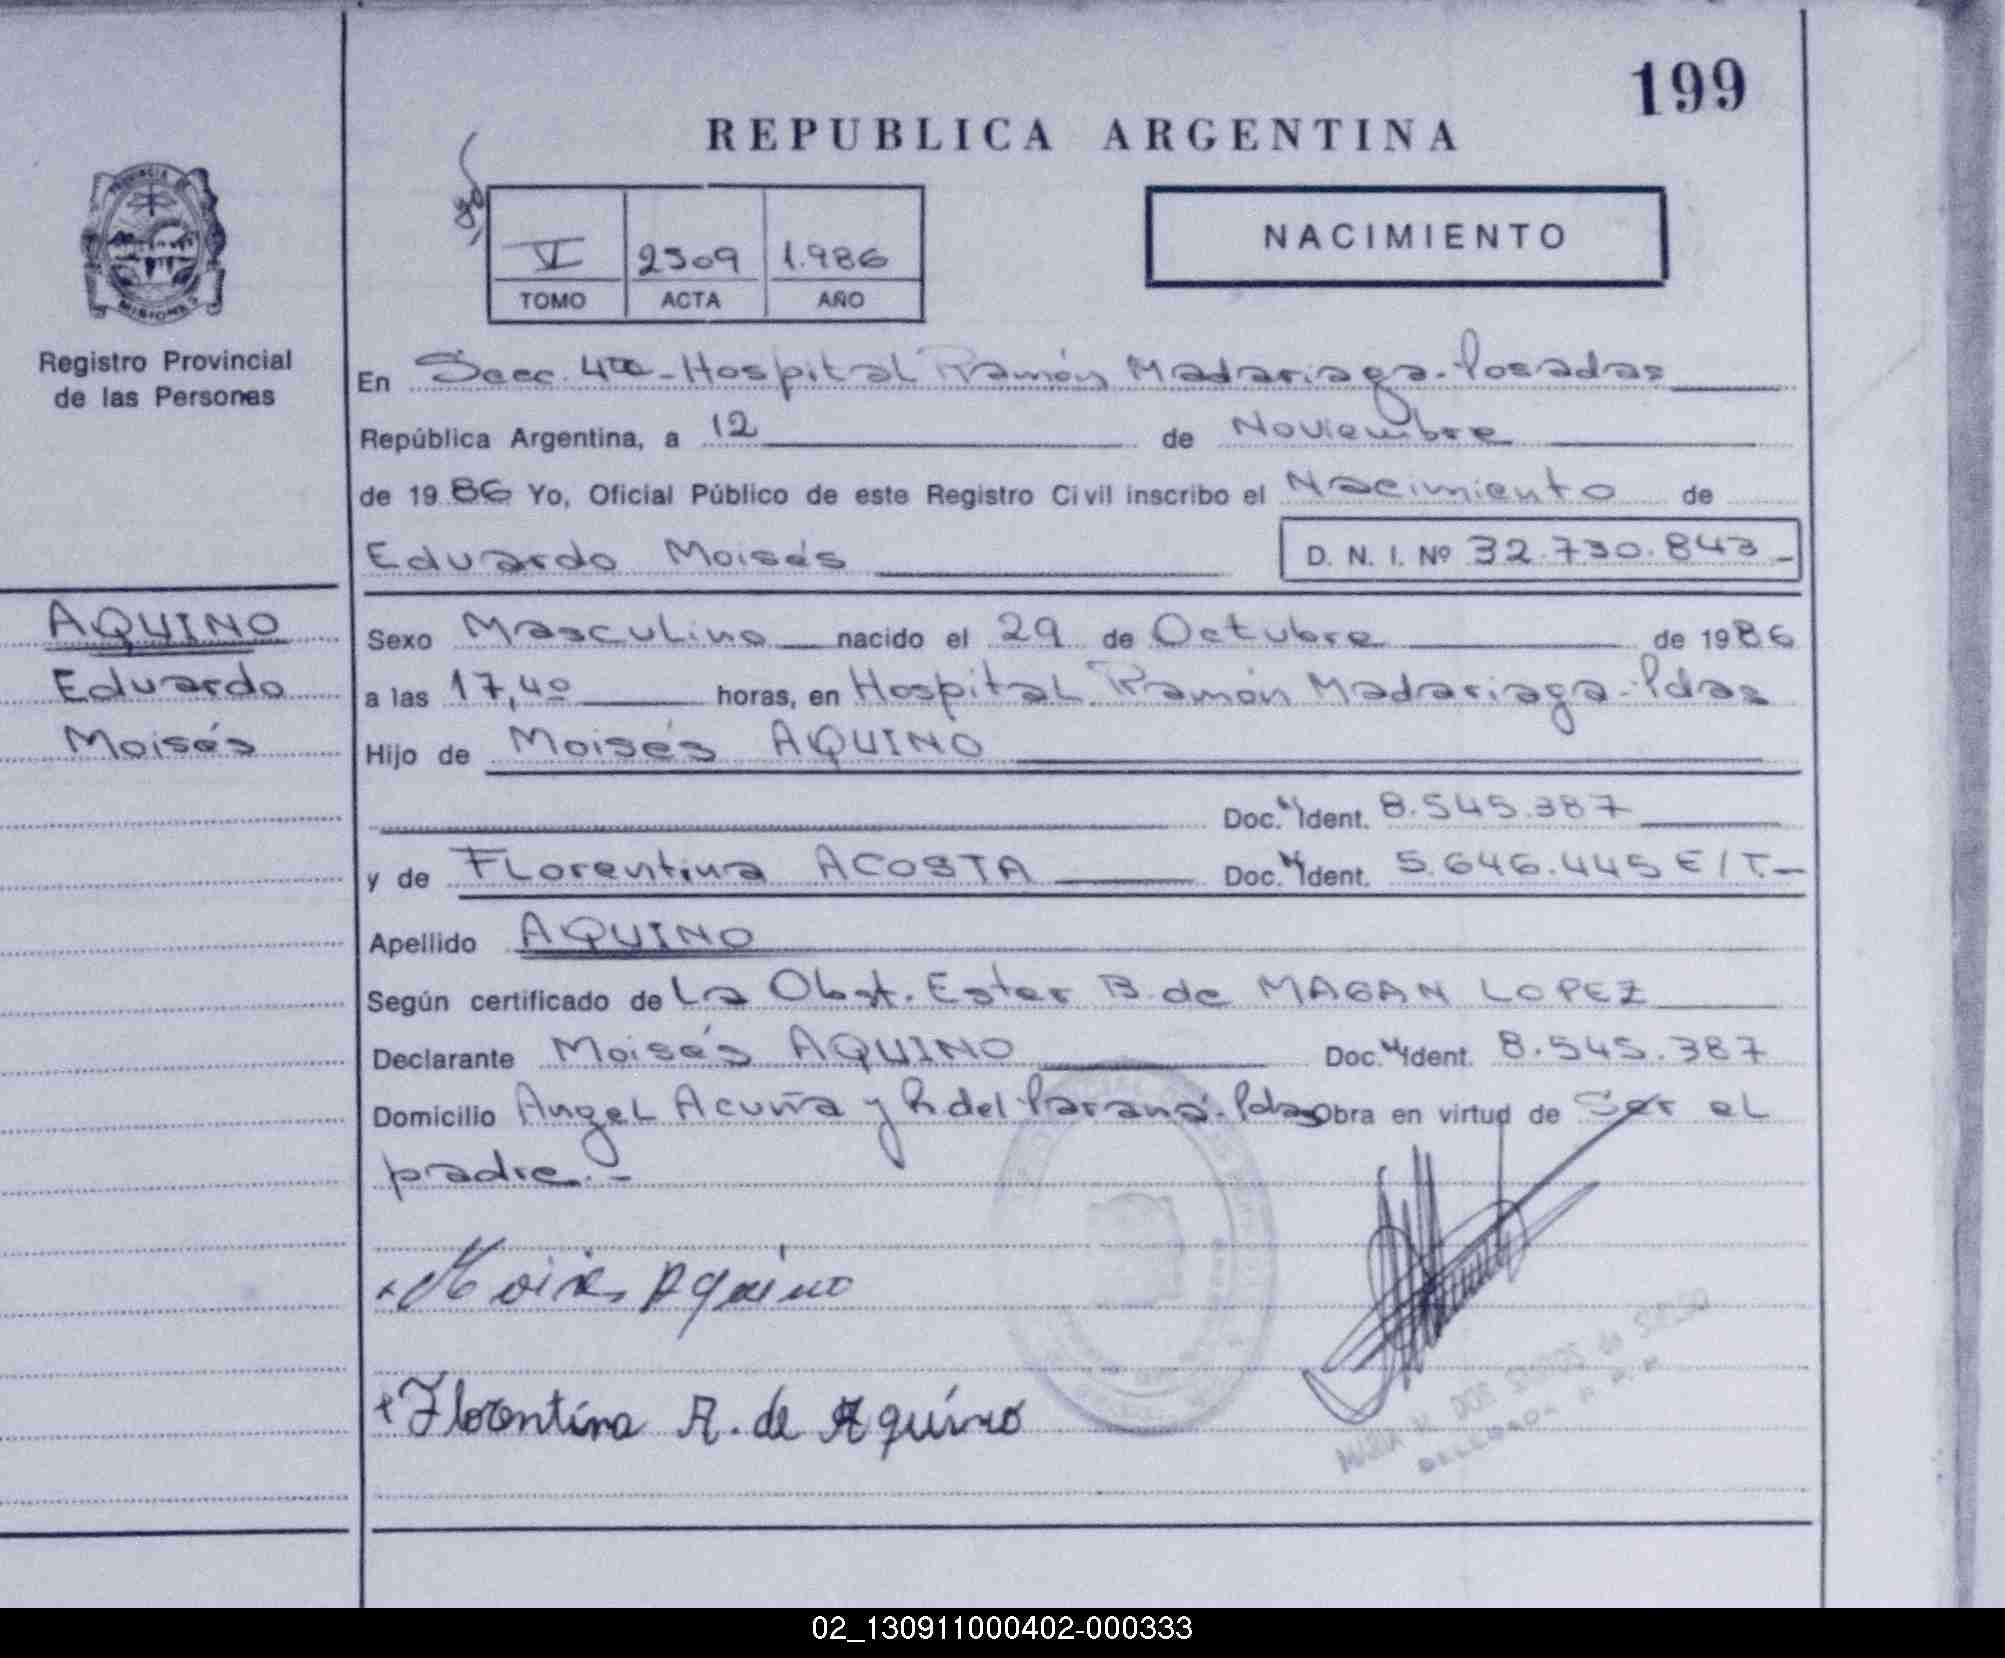 199
REPUBLICA ARGENTINA
PROVINCIA DE
MISIONES
Registro Provincial
de las Personas
VI 2509 1.986
TOMO ACTA AÑO
NACIMIENTO
En Secc. 4ta - Hospital Ramón Madariaga - Posadas
República Argentina, a 12 de Noviembre
de 1986 Yo, Oficial Público de este Registro Civil inscribo el Nacimiento de
Eduardo Moisés D. N. I. Nº 32.730.843 -
AQUINO
Eduardo
Moisés
Sexo Masculino nacido el 29 de Octubre de 1986
a las 17,40 horas, en Hospital Ramón Madariaga - Pdas
Hijo de Moisés AQUINO
Doc. Ident. 8.545.387
y de Florentina ACOSTA Doc. Ident. 5.646.445 E/T. -
Apellido AQUINO
Según certificado de La Obst. Ester B. de MAGAN LOPEZ
Declarante Moisés AQUINO Doc. Ident. 8.545.387
Domicilio Angel Acuña y R. del Paraná - Pdas Obra en virtud de Ser el
padre. -
Moises Aquino
Florentina A. de Aquino
MARIA DOS SANTOS de
DELEGADA
02_130911000402-000333